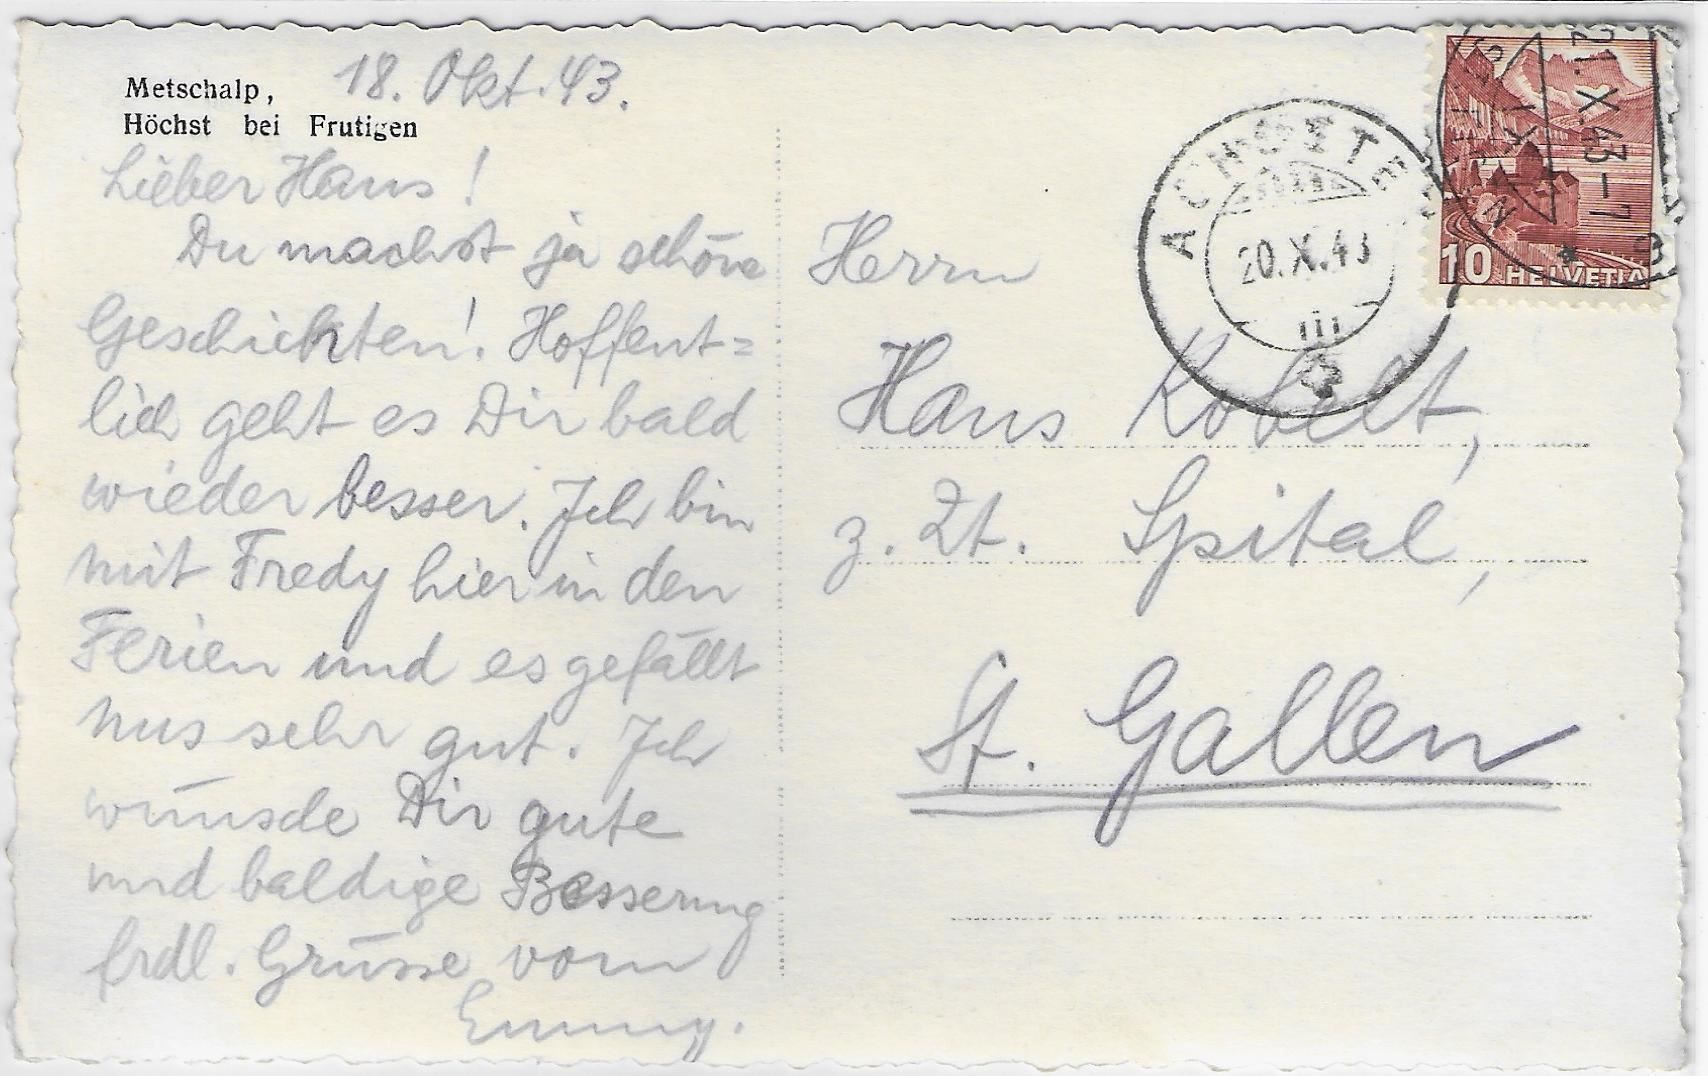 Metschalp, 18. Okt. 43.
Höchst bei Frutigen
Lieber Hans!
Du machst ja schöne
Geschichten! Hoffent=
lich geht es Dir bald
wieder besser. Ich bin
mit Fredy hier in den
Ferien und es gefällt
uns sehr gut. Ich
wünsche Dir gute
und baldige Besserung
frdl. Grüsse vom
Emmy.
Herrn
Hans Kobelt,
z. Zt. Spital,
St. Gallen
20.X.43
III
21.X.43-7
10 HELVETIA